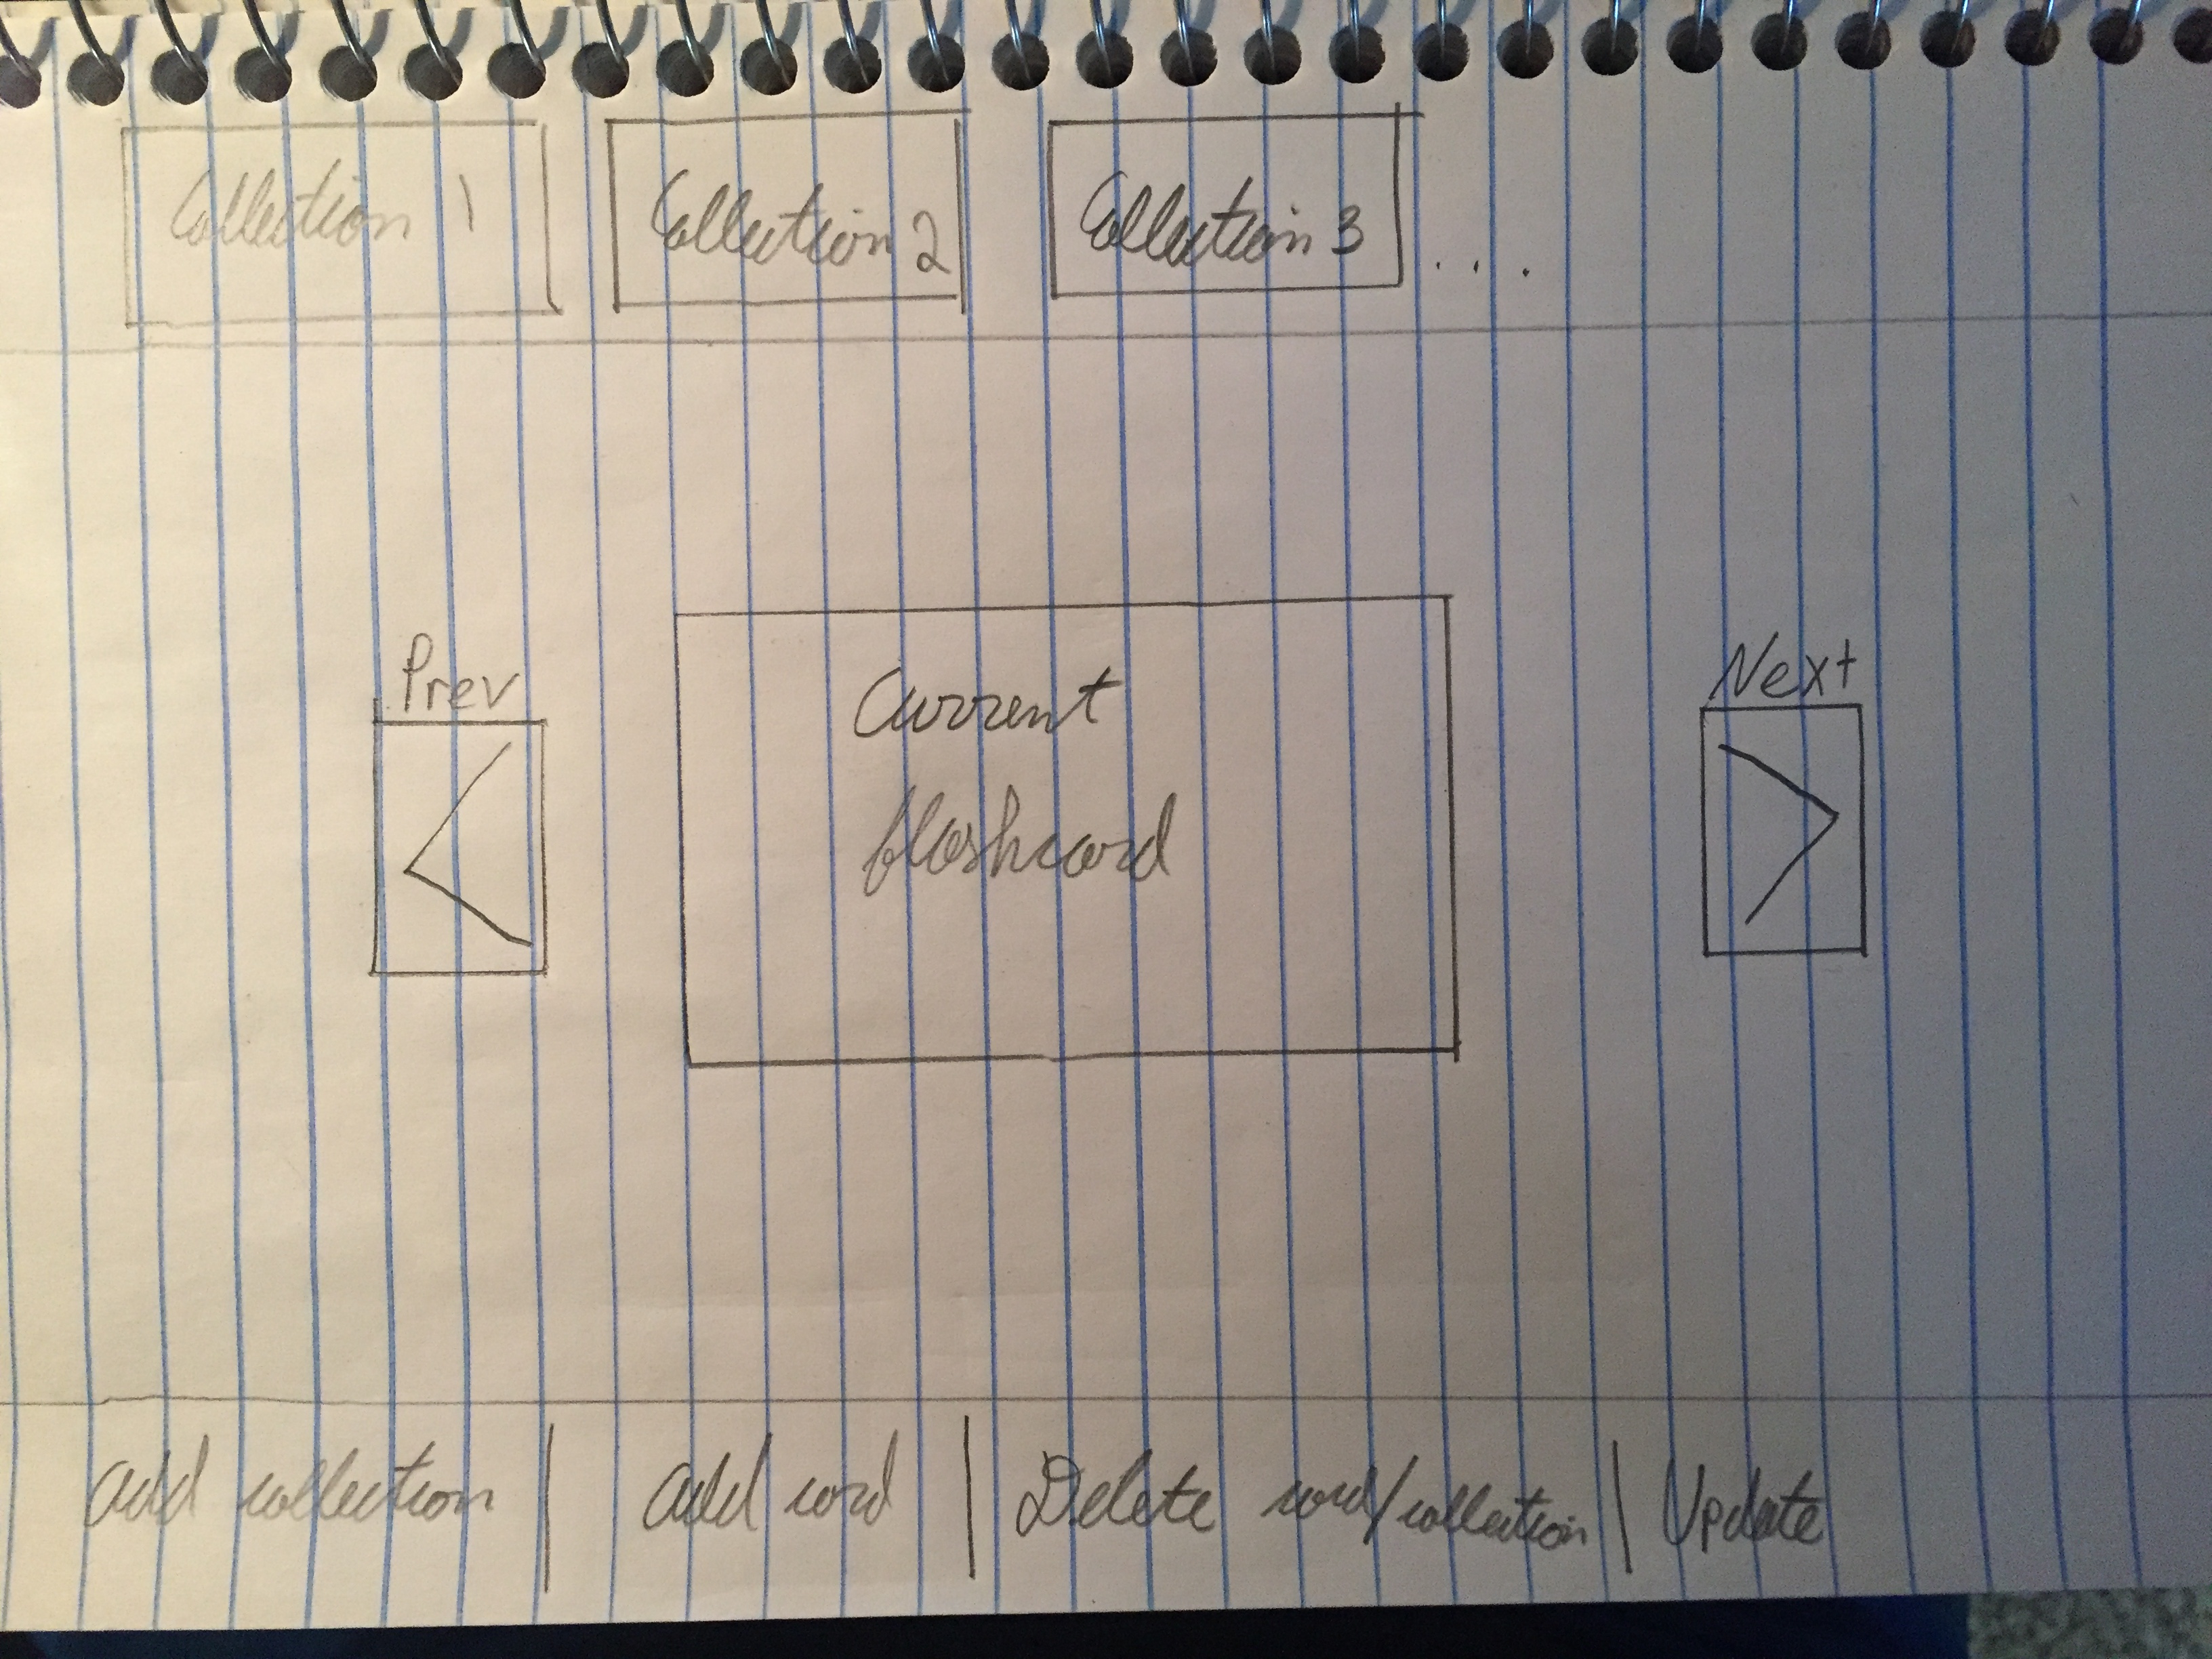 Collection 1 Collection 2 Collection 3 ...
Prev
Current
flashcard
Next
Add collection | Add word | Delete word/collection | Update